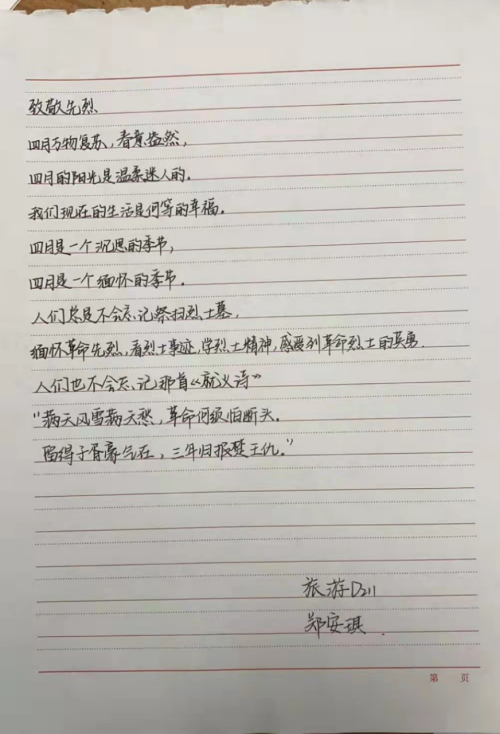 致敬先烈
四月万物复苏，春意盎然，
四月的阳光是温柔迷人的。
我们现在的生活是何等的幸福。
四月是一个沉思的季节，
四月是一个缅怀的季节。
人们总是不会忘记祭扫烈士墓，
缅怀革命先烈，看烈士事迹，学烈士精神，感受到革命烈士的英勇．
人们也不会忘记那首“就义诗”
“满天风雪满天愁，革命何须怕断头。
留得子胥豪气在，三年归报楚王仇。”
旅游D211
郑安琪．
第 页